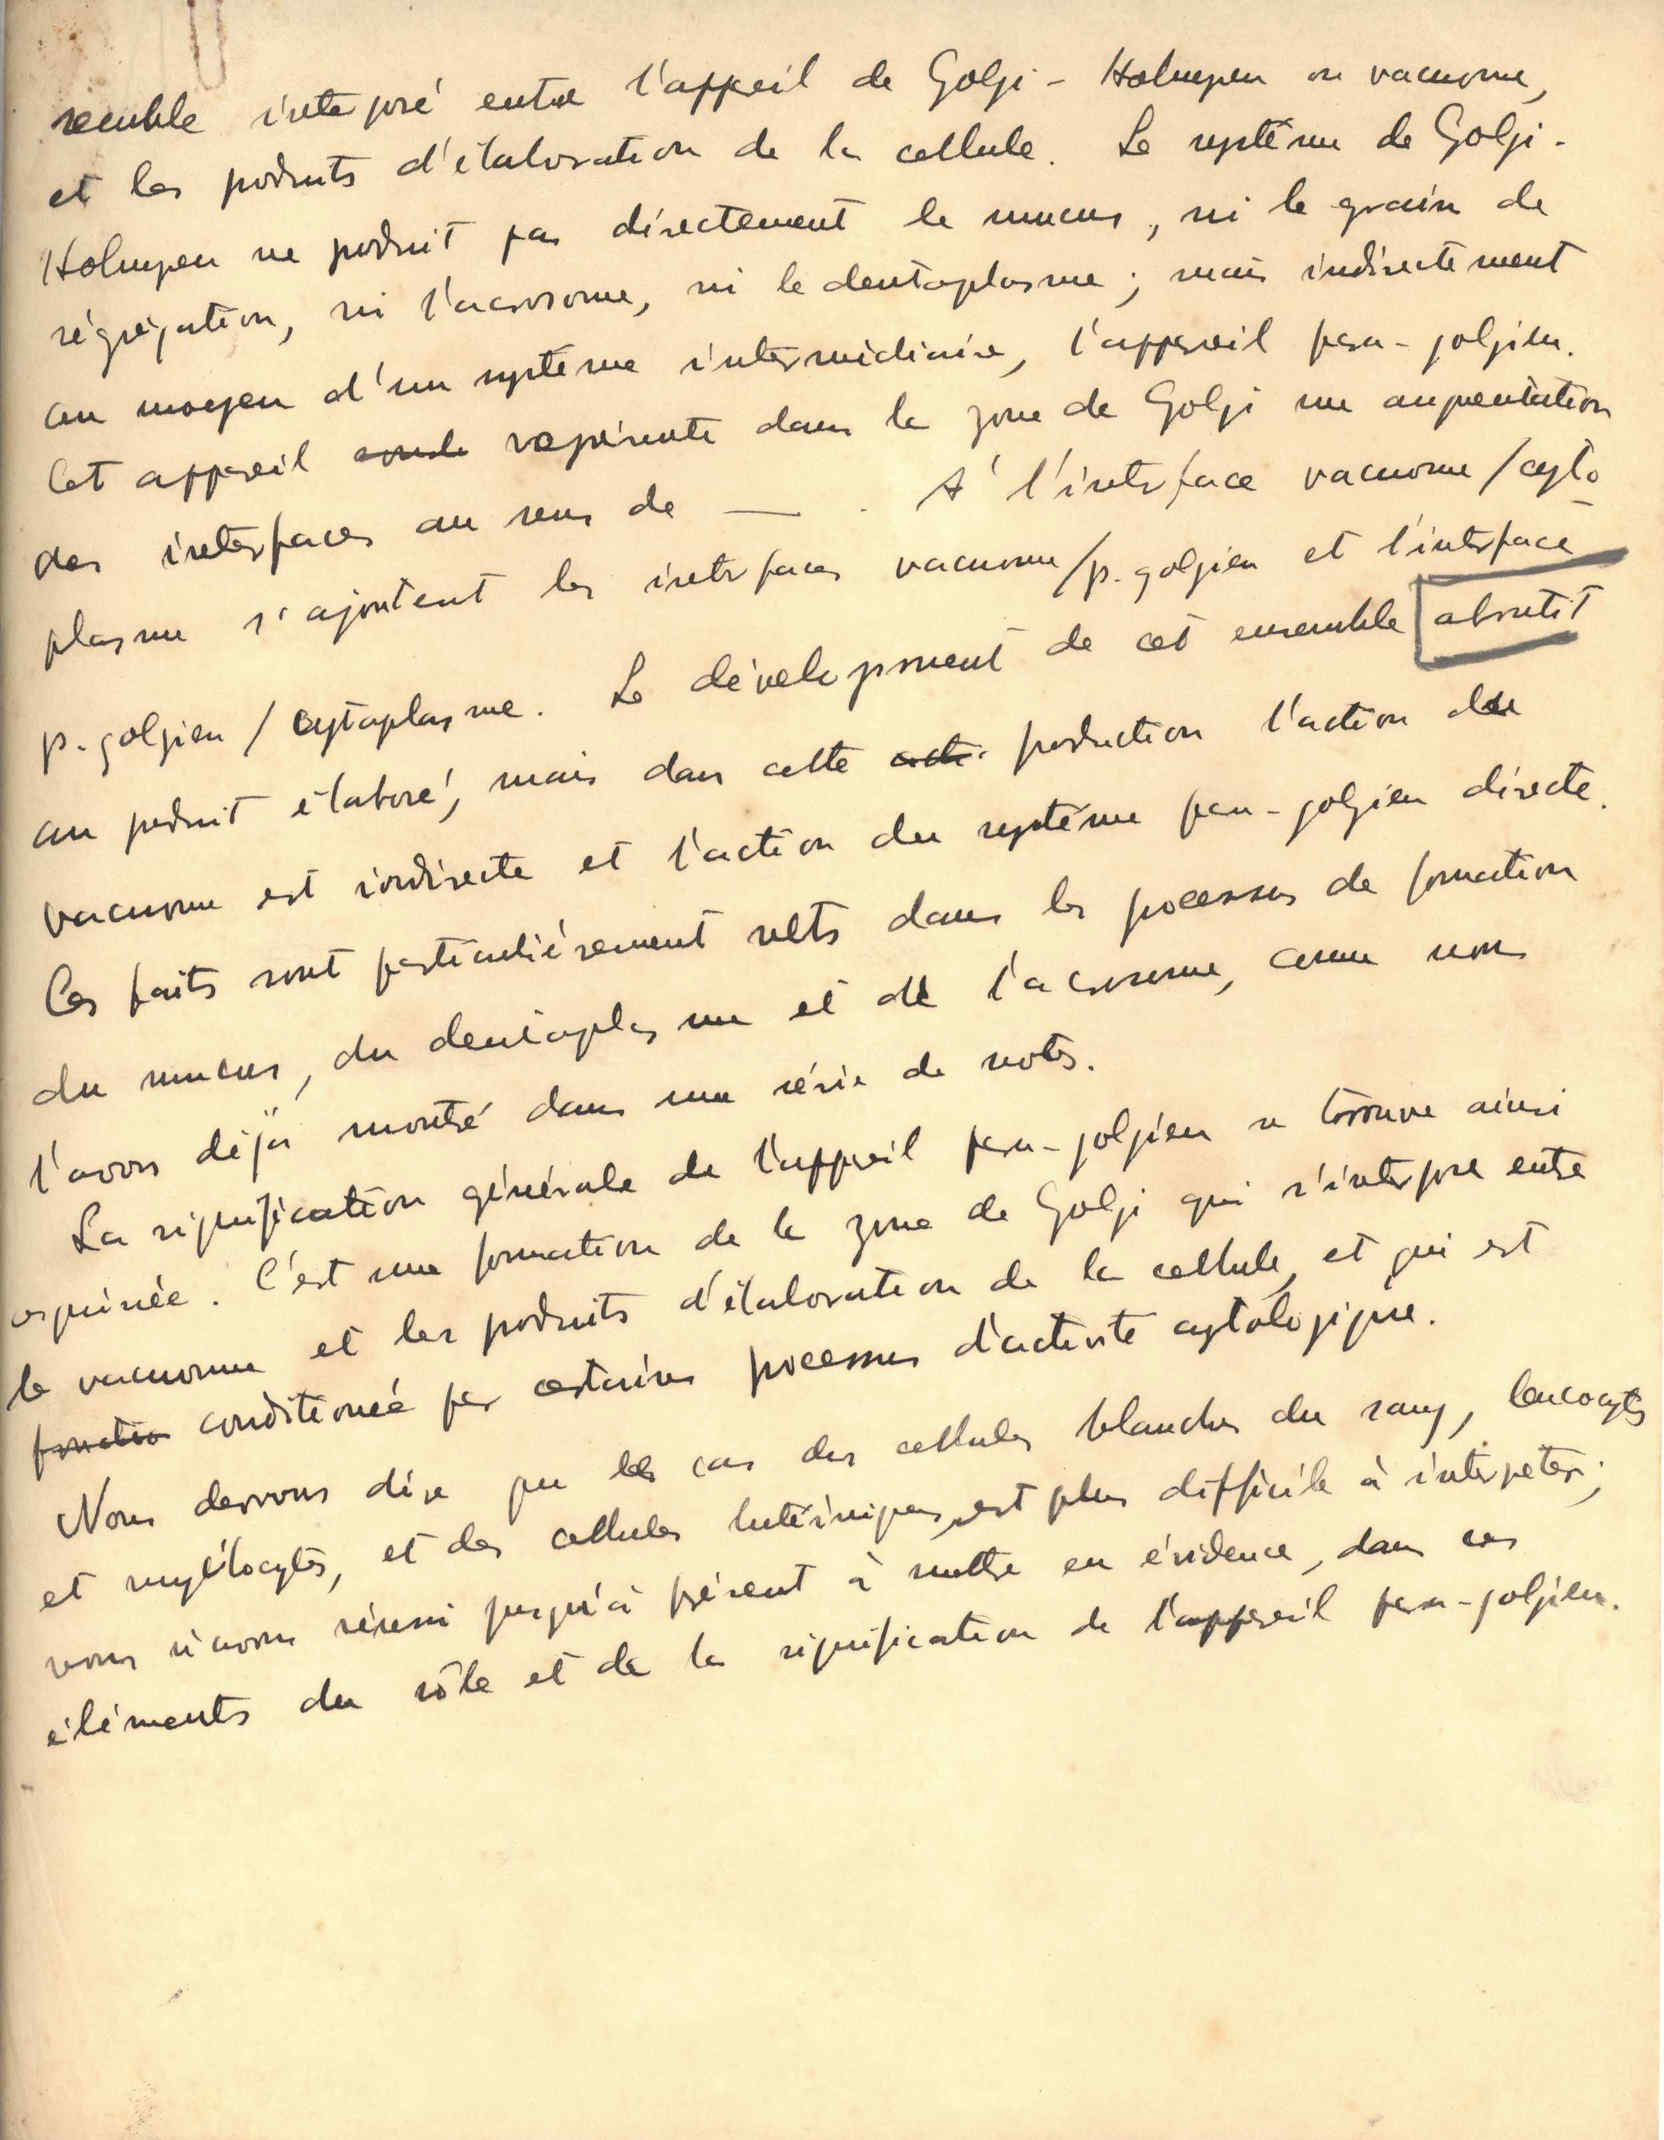 semble interposé entre l'appareil de Golgi - Holmgren ou vacuome,
et les produits d'élaboration de la cellule. Le système de Golgi -
Holmgren ne produit pas directement le mucus, ni le grain de
ségrégation, ni l'acrosome, ni le deutoplasme; mais indirectement
au moyen d'un système intermédiaire, l'appareil para-golgien.
Cet appareil représente dans la zone de Golgi une augmentation
des interfaces au sens de — . A l'interface vacuome/cyto
plasme s'ajoutent les interfaces vacuome/p. golgien et l'interface
p. golgien / cytoplasme. Le développement de cet ensemble aboutit
au produit élaboré, mais dans cette production l'action du
vacuome est indirecte et l'action du système para-golgien directe.
Ces faits sont particulièrement nets dans les processus de formation
du mucus, du deutoplasme et de l'acrosome, comme nous
l'avons déjà montré dans une série de notes.
La signification générale de l'appareil para-golgien se trouve ainsi
esquissée. C'est une formation de la zone de Golgi qui s'interpose entre
le vacuome et les produits d'élaboration de la cellule, et qui est
fonction conditionée par certains processus d'activité cytologique.
Nous devrons dire que le cas des cellules blanches du sang, leucocytes
et myélocytes, et des cellules lutéiniques, est plus difficile à interpréter;
nous n'avons réussi jusqu'à présent à mettre en évidence, dans ces
éléments du rôle et de la signification de l'appareil para-golgien.